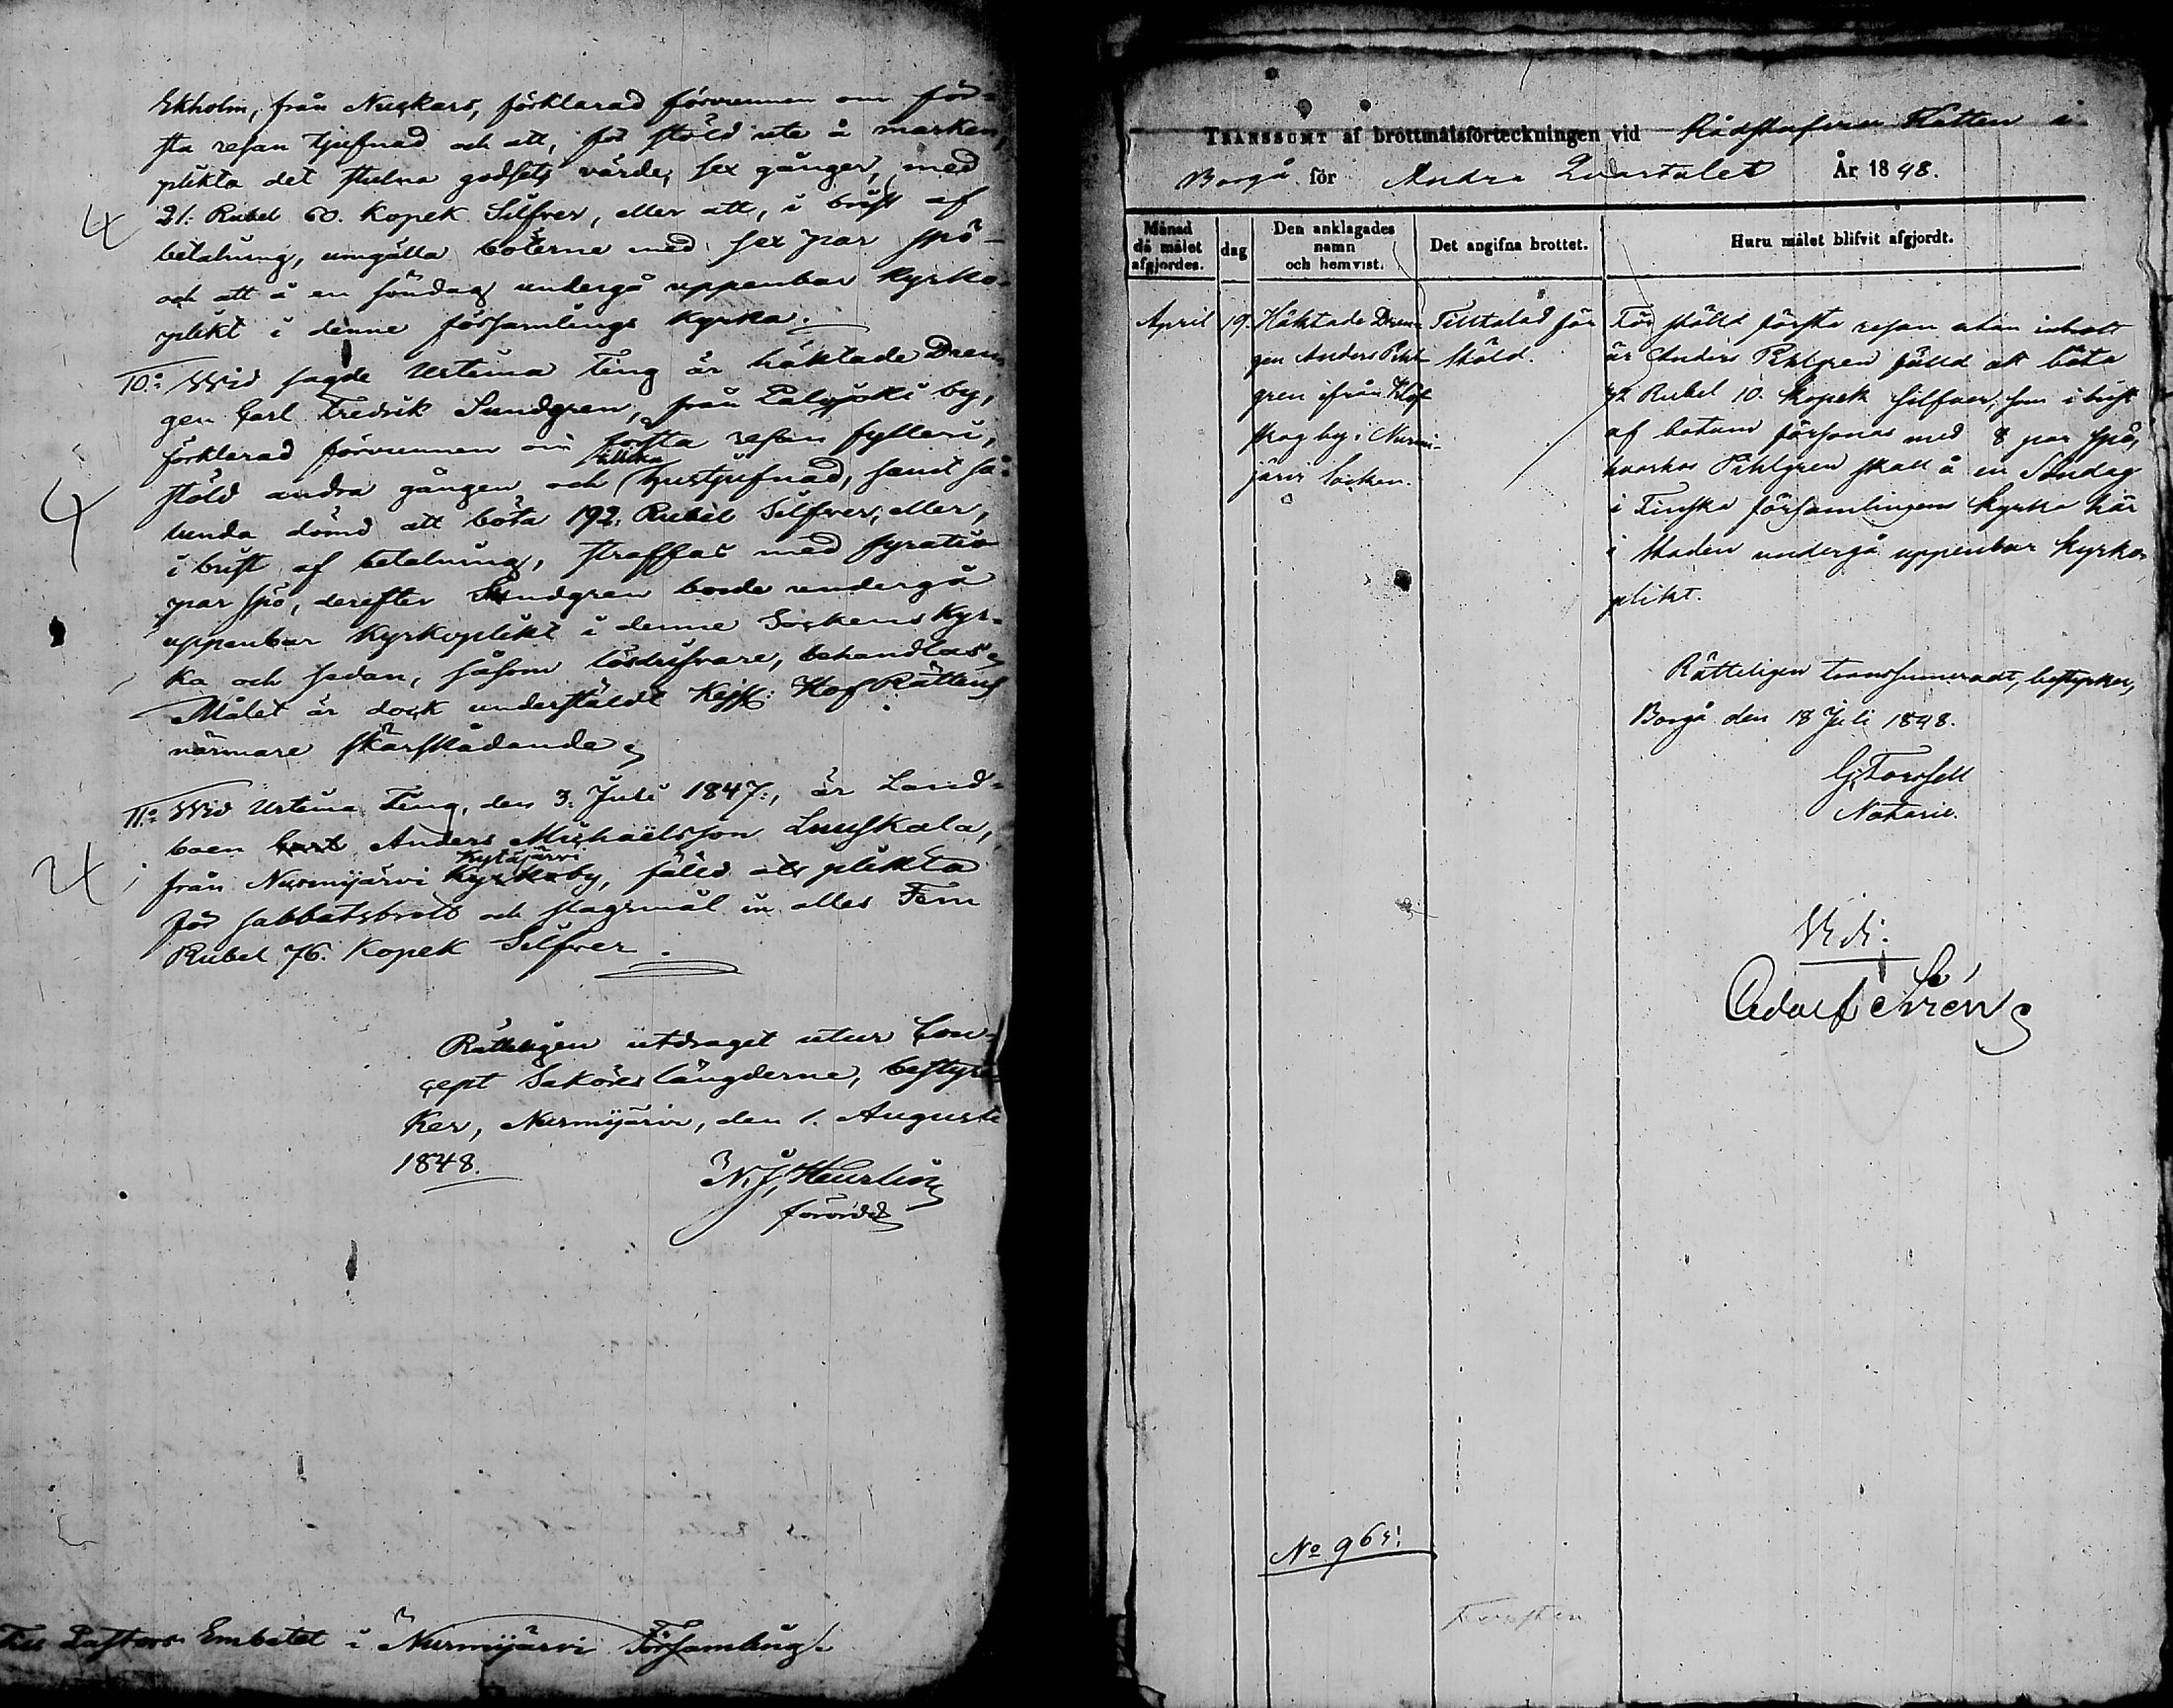 Ekholm, från Nuckars, förklarad förvunnen om för-
sta resan tjufnad och att, för stöld ute å marken,
plikta det stulna godsets värde, sex gånger, med
21. Rubel 60. Kopek Silfver, eller att, i brist af
betalning, umgälla böterne med sex par spö-
och att å en söndag undergå uppenbar Kyrko-
plikt i denne församlings Kyrka.
10:o Wid sagde Urtima Ting är häktade Dren-
gen Carl Fredrik Sundgren, från Palojoki by,
förklarad förvunnen om första resan fylleri,
stöld andra gången och tillika tjustjufnad, samt så-
lunda dömd att böta 192. Rubel Silfver, eller,
i brist af betalning, straffas med fyratio
par spö, derefter Sundgren borde undergå
uppenbar Kyrkoplikt i denne Sockens Kyr-
ka och sedan, såsom lösdrifvare, behandlas,
Målet är dock underställdt Kejs: Hof Rättens
närmare skärskådande.
11:o Wid Urtima Ting, den 3. Juli 1847:, är Land-
boen Anders Michaëlsson Luuskala,
från Nurmijärvi Kytäjärvi by, fälld att plikta
för sabbatsbrott och slagsmål in alles Fem
Rubel 76. Kopek Silfver.
Rätteligen utdraget utur Con-
cept Saköres längderne, bestyr-
ker, Nurmijärvi, den 1. Augusti
1848.
N. J. Heurlin
förordd
Till Pastors Embetet i Nurmijärvi Församling.
4
4
4
TRANSSUMT af brottmålsförteckningen vid Rådstufvu Rätten i
Borgå för Andra Quartalet År 1848.
Månad då målet afgjordes.
dag
Den anklagades namn och hemvist.
Det angifna brottet.
Huru målet blifvit afgjordt.
April
19.
Häktade Dren-
gen Anders Pihl-
gren ifrån Klöf
skog by i Nurmi-
järvi Socken.
Tilltalad för
stöld.
För stöld första resan utan inbrott
är Anders Pihlgren fälld att böta
32 Rubel 10. Kopek Silfver, som i brist
af botum försonas med 8 par spö,
hvarhos Pihlgren skall å en Söndag
i Finska församlingens Kyrka här
i Staden undergå uppenbar Kyrko-
plikt.
Rätteligen transsumeradt, bestyrker,
Borgå den 18 Juli 1848.
G. Forssell
Notarie.
Vidi.
Adolf
No 965: